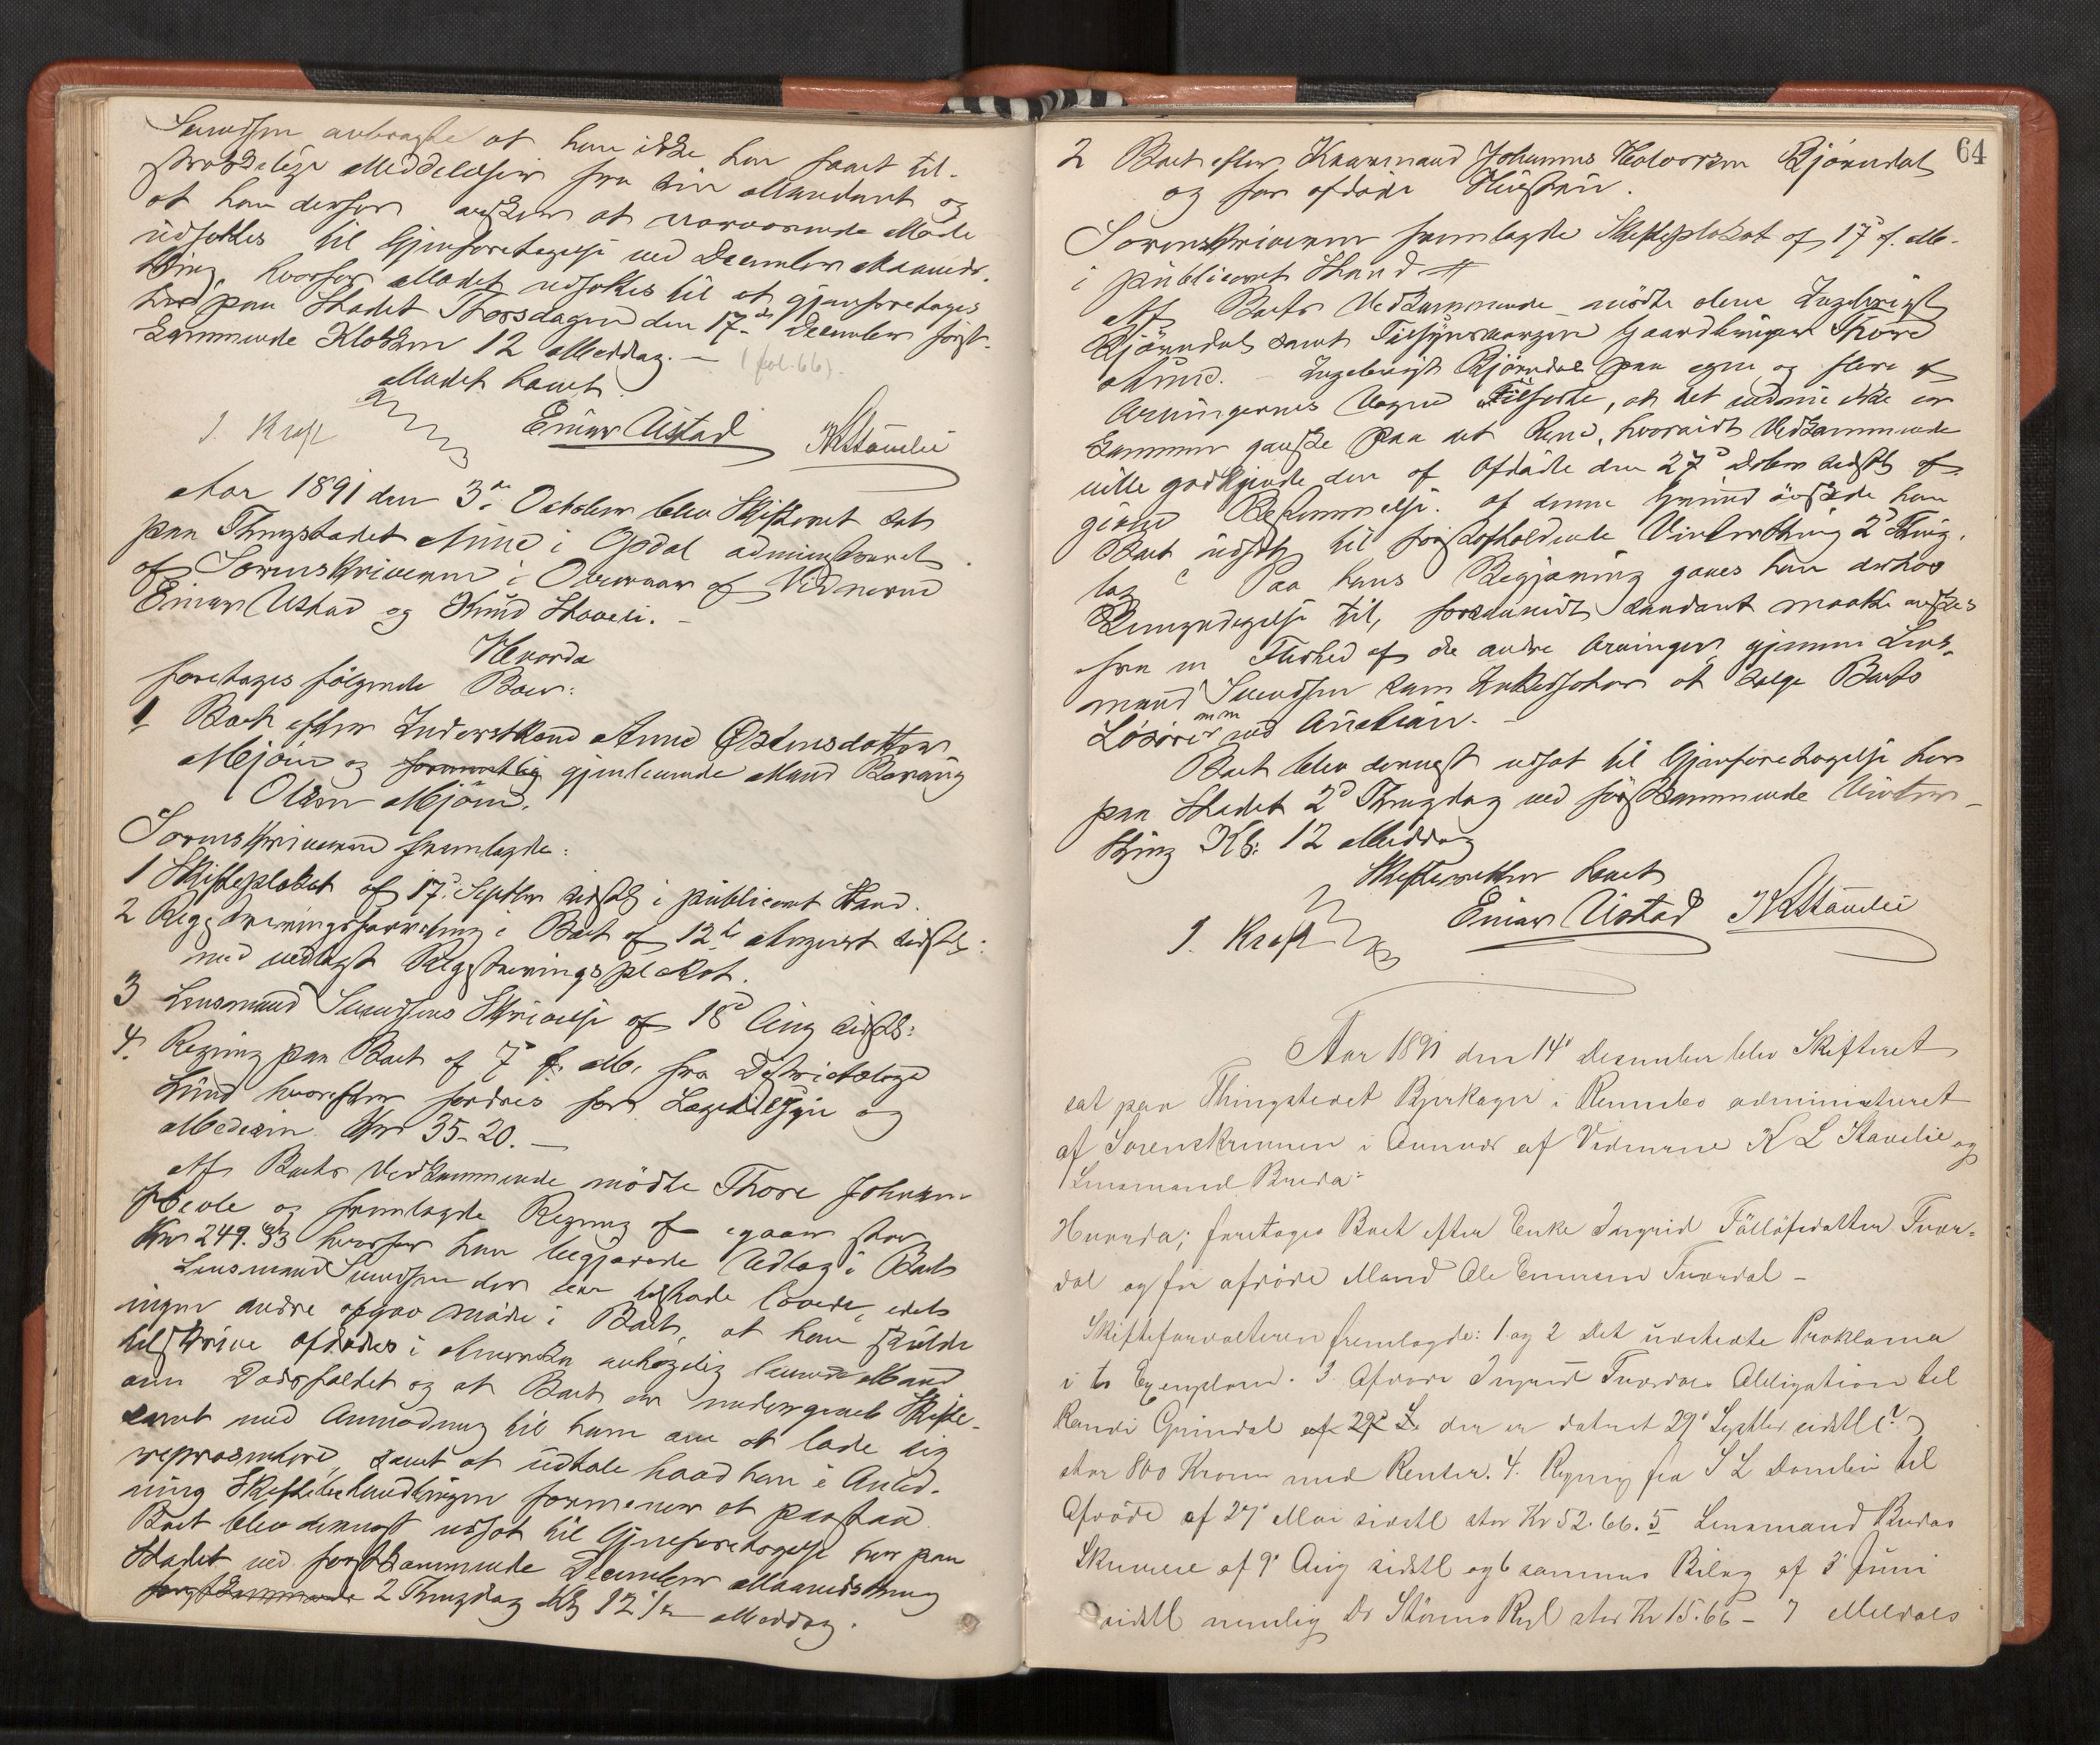 Svendsen anbragte at han ikke har faaet til-
strækkelige Meddelelser fra sin Mandant og
at han derfor ønsker at nærværende Møde
udsættes til Gjenforetagelse ved December Maaneds-
thing, hvorfor Mødet udsattes til at gjenforetages
her paa Stedet Thorsdagen den 17de December først-
kommende Klokken 12 Middag. — (fol. 66).
Mødet hævet
J. Kraft Einar Ustad K L Stauelie
Aar 1891 den 3die October blev Skifteret sat
paa Thingstedet Aune i Opdal administreret
af Sorenskriveren i Overvær af Vidnerne
Einar Ustad og Knud Stoveli. —
Hvorda
foretages følgende Boer:
1 Boet efter Inderstkone Anne Estensdatter
Mjøen og formentlig gjenlevende Mand Baraug
Olsen Mjøen.
Sorenskriveren fremlagde:
1 Skifteplakat af 17d Septbr sidstl i publiceret Stand.
2 Registreringsforretning i Boet af 12te August sidstl:
med vedlagt Registreringsplakat.
3 Lensmand Svendsens Skrivelse af 18d Aug sidstl:
4. Regning paa Boet af 7d f. M. fra Districtslæge
Lund hvorefter fordres for Lægetilsyn og
Medicin Kr 35-20. —
Af Boets Vedkommende mødte Thore Johnsen
og fremlagde Regning af igaar stor
Kr 249.33 hvorfor han begjærede Udlæg i Boet
Lensmand Svendsen der var tilstede lovede, idet
ingen andre afgav Møde i Boet, at han skulde
tilskrive Afdødes i Amerika  levende Mand
om Dødsfaldet og at Boet er undergivet Skifte-
samt med Anmodning til ham om at lade sig
repræsentere, samt at udtale hvad han i Anled-
ning Skiftebehandlingen formener at paastaa
Boet blev dernæst udsat til Gjenforetagelse her paa
Stedet ved førstkommende December Maanedsthing
førstkommende 2 Thingdag Kl 12 1/2 Middag.
64
2 Boet efter Kaarmand Johannes Halvorsen Bjørndal
og før afdøde Hustru.
Sorenskriveren fremlagde Skifteplakat af 17d f. M.
i publiceret Stand
Af Boets Vedkommende mødte alene Ingebrigt
Bjørndal samt Tilsynsværgen Gaardbruger Thore
Aune. — Ingebrigt Bjørndal paa egne og flere af
Arvingernes Vegne tilførte, at det endnu ikke er
kommen ganske paa det Rene, hvorvidt Vedkommende
ville godkjende den af Afdøde den 27d sidstl af
givne Bestemmelse. af denne Grund ønskede han
Boet udsat til førstafholdende Vinterthing 2d Thing-
dag Paa hans Begjæring gaves han derhos
Bemyndigelse til, forsaavidt saadant maatte ønskes
fra en Flerhed af de andre Arvinger, gjennem Lens-
mand Svendsen som Inkassator at sælge Boets
Løsøre m m ved Auction. —
Boet blev dernæst udsat til Gjenforetagelse her
paa Stedet 2d Thingdag ved førstkommende Vinter-
thing Kl: 12 Middag
Skifteretten hævet
J. Kraft Einar Ustad K L Stauelie
Aar 1891 den 14d Desember blev Skifteret
sat paa Thingstedet Bjerkager i Rennebo administreret
af Sorenskriveren i Overvær af Vidnerne K L Stauelie og
Lensmand Breda:
Hvorda; foretages Boet efter Enke Ingrid Tølløfsdatter Tver-
dal og før afdøde Mand Ole Tverdal —
Skifteforvalteren fremlagde: 1 og 2 Det udstedte Proklama
i to Exemplarer. 3. Afdøde Ingrid Tverdals Obligation til
Randi Grindal af 29d S. der er datert 29d Septbr sidstl (?)
stor 800 Kroner med Renter. 4. Regning fra S L til
Afdøde af 27d Mai sidstl stor Kr 52.66. 5 Lensmand Bredas
Skrivelse af 9d Aug sidstl og 6 sammes Bilag af 3d Juni
sidstl nemlig Dr Størens Regl stor Kr 15.66 — 7 Meldals